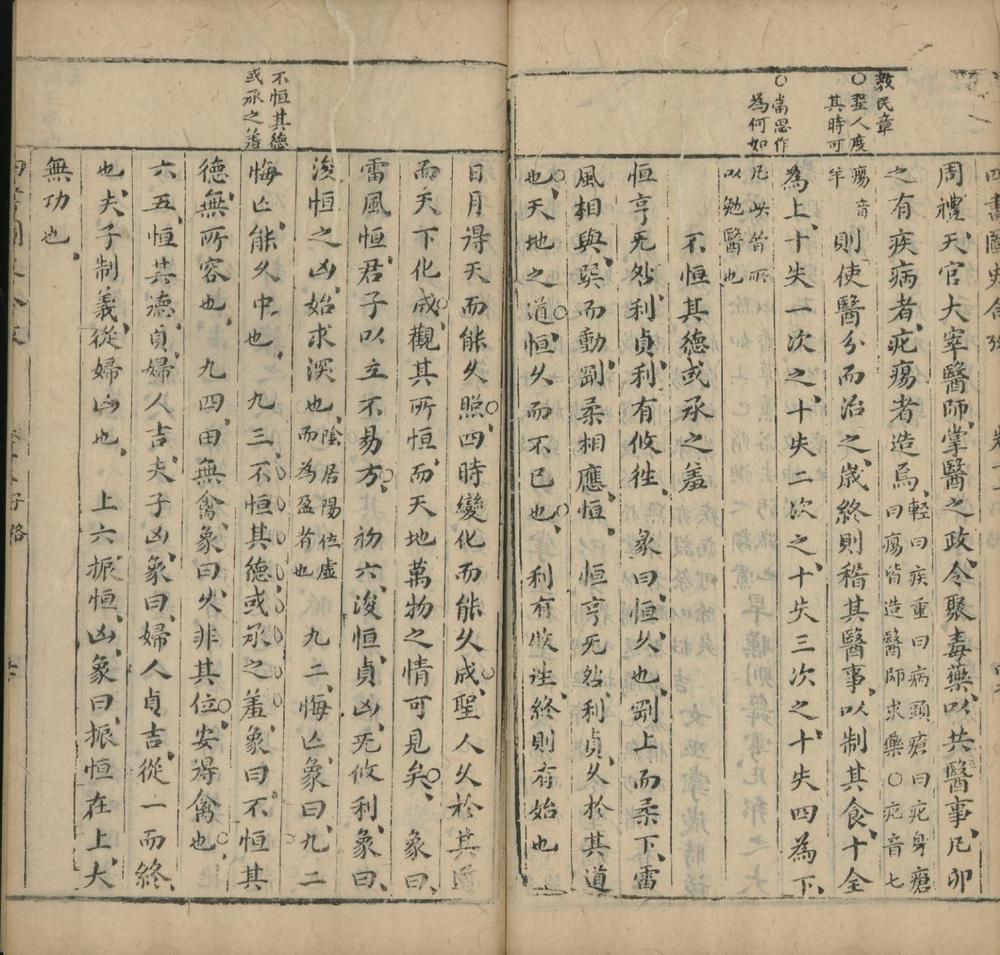 教民章
○聖人度
其時可
○當思作
為何如
周禮天官大宰醫師掌醫之政令聚毒藥以共醫事凡邦
之有疾病者疕瘍者造焉輕曰疾重曰病頭瘡曰疕身瘡曰瘍皆造醫師求藥○疕音七瘍音羊
則使醫分而治之歲終則稽其醫事以制其食十全
為上十失一次之十失二次之十失三次之十失四為下
凡此皆所以勉醫也
不恒其德或承之羞
恒亨无咎利貞利有攸徃 彖曰恒久也剛上而柔下雷
風相與巽而動剛柔相應恒 恒亨无咎利貞久於其道
也天地之道恒久而不已也 利有攸往終則有始也
不恒其德
或承之羞
日月得天而能久照四時變化而能久成聖人久於其道
而天下化成觀其所恒而天地萬物之情可見矣 象曰
雷風恒君子以立不易方 初六浚恒貞凶无攸利象曰
浚恒之凶始求深也陰居陽位虛而為盈者也 九二悔亡象曰九二
悔亡能久中也 九三不恒其德或承之羞象曰不恒其
德無所容也 九四田無禽象曰久非其位安得禽也
六五恒其德貞婦人吉夫子凶象曰婦人貞吉從一而終
也夫子制義從婦凶也 上六振恒凶象曰振恒在上大
無功也